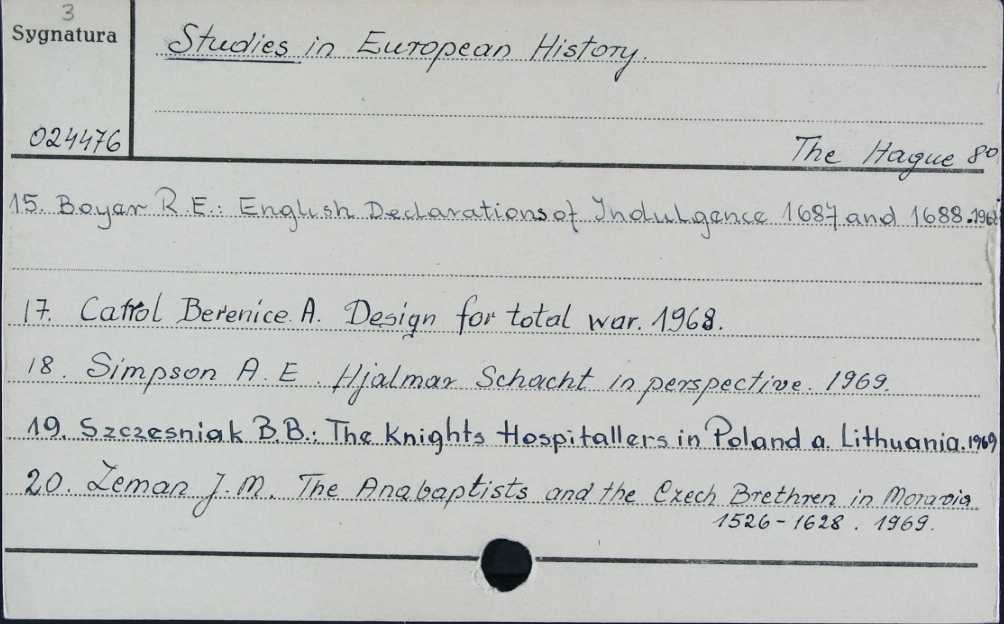 3
Sygnatura
Studies in European History.
024476
The Hague 8º
15. Boyer R.E.: English Declarations of Indulgence 1687 and 1688.
17. Carrol Berenice A. Design for total war. 1968.
18. Simpson A.E. Hjalmar Schacht in perspective. 1969.
19. Szczesniak B.B.: The Knights Hospitallers in Poland a. Lithuania. 1969
20. Zeman J.M. The Anabaptists and the Czech Brethren in Moravia
1526-1628. 1969.